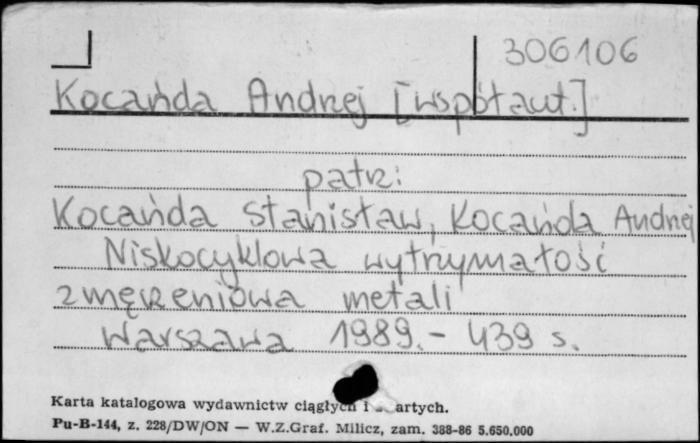 306106
Kocańda Andrzej [współaut.]
patrz:
Kocańda Stanisław, Kocańda Andrzej
Niskocyklowa wytrzymałość
zmęczeniowa metali
Warszawa 1989. - 439 s.
Karta katalogowa wydawnictw ciągłych i artych.
Pu-B-144, z. 228/DW/ON — W.Z.Graf. Milicz, zam. 388-86 5.650.000